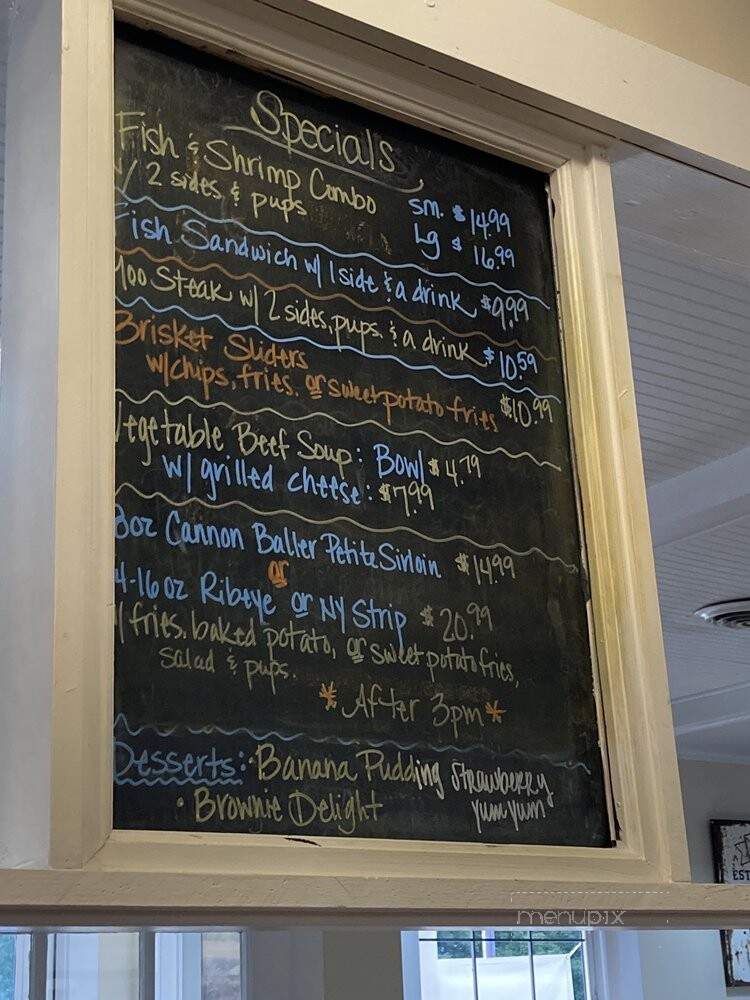 Specials
Fish & Shrimp Combo
w/ 2 sides & pups
sm. $14.99
Lg $ 16.99
Fish Sandwich w/ 1 side & a drink $9.99
Moo Steak w/ 2 sides, pups & a drink $10.59
Brisket Sliders
w/chips, fries, or sweet potato fries $10.99
Vegetable Beef Soup: Bowl $4.79
w/ grilled cheese: $7.99
8oz Cannon Baller Petite Sirloin $14.99
or
14-16oz Ribeye or NY Strip $20.99
w/ fries, baked potato, or sweet potato fries,
salad & pups.
*After 3pm*
Desserts: • Banana Pudding
Strawberry
yum yum
• Brownie Delight
EST
menupix